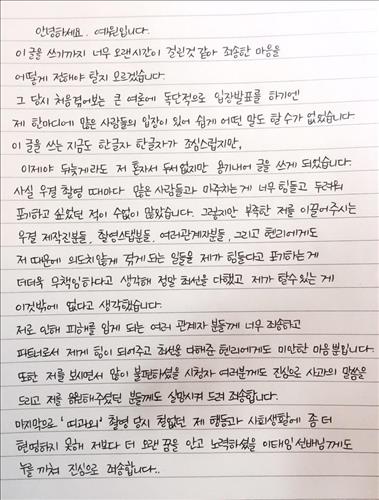 안녕하세요. 예원입니다.
이 글을 쓰기까지 너무 오랜시간이 걸린것 같아 죄송한 마음을
어떻게 전해야 할지 모르겠습니다.
그 당시 처음겪어보는 큰 여론에 독단적으로 입장발표를 하기엔
제 한마디에 많은 사람들의 입장이 있어 쉽게 어떤 말도 할 수가 없었습니다.
이 글을 쓰는 지금도 한글자 한글자가 조심스럽지만,
이제야 뒤늦게라도 저 혼자서 두서없지만 용기내어 글을 쓰게 되었습니다.
사실 우결 촬영 때마다 많은 사람들과 마주치는 게 너무 힘들고 두려워
포기하고 싶었던 적이 수없이 많았습니다. 그렇지만 부족한 저를 이끌어주시는
우결 제작진분들, 촬영스탭분들, 여러관계자분들, 그리고 헨리에게도
저 때문에 의도치않게 겪게 되는 일들을 제가 힘들다고 포기하는 게
더더욱 무책임하다고 생각해 정말 최선을 다했고 제가 할수있는 게
이것밖에 없다고 생각했습니다.
저로 인해 피해를 입게 되는 여러 관계자 분들께 너무 죄송하고
파트너로서 제게 힘이 되어주고 최선을 다해준 헨리에게도 미안한 마음뿐입니다.
또한 저를 보시면서 많이 불편하셨을 시청자 여러분께도 진심으로 사과의 말씀을
드리고 저를 응원해주셨던 분들께도 실망시켜 드려 죄송합니다.
마지막으로 '띠과외' 촬영 당시 철없던 제 행동과 사회생활에 좀 더
현명하지 못해 저보다 더 오랜 꿈을 안고 노력하셨을 이태임선배님께도
누를 끼쳐 진심으로 죄송합니다..